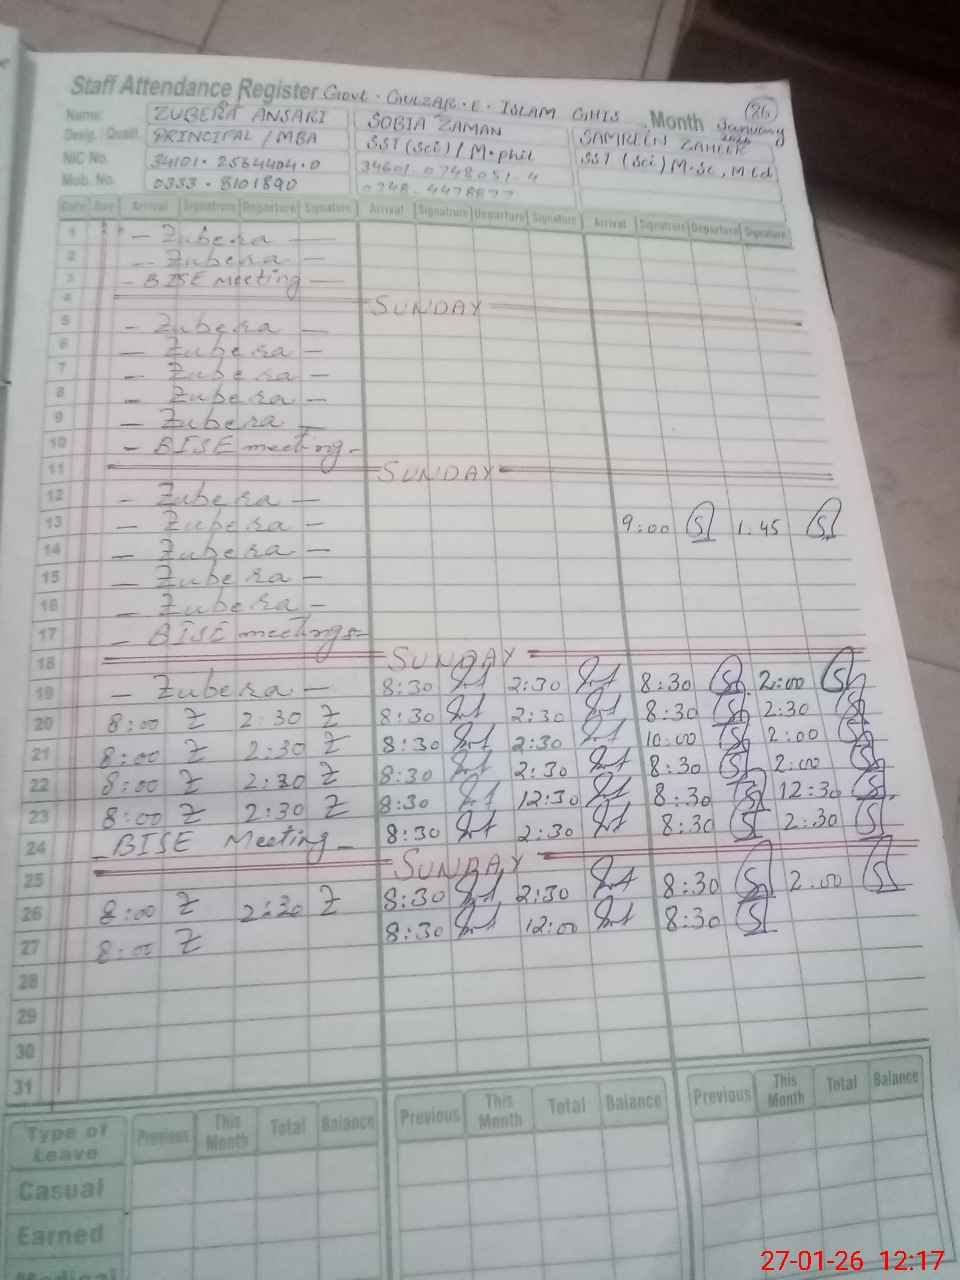 Staff Attendance Register Govt. GULZAR.E.ISLAM GHIS Month January 26
Name: ZUBERA ANSARI SOBIA ZAMAN
Desig. Quali. PRINCIPAL / MBA SST (Sci) / M.phil SST (Sci) M.Sc, M Ed
NIC No. 34101.2564404.0 34601.0748051.4
Mob. No. 0333.8101890
Date Day Arrival Signature Departure Signature Arrival Signature Departure Signature Arrival Signature Departure Signature
1 - Zubera -
2 - Zubera -
3 - BISE meeting -
4 SUNDAY
5 - Zubera -
6 - Zubera -
7 - Zubera -
8 - Zubera -
9 - Zubera -
10 - BISE meeting -
11 SUNDAY
12 - Zubera -
13 - Zubera - 9:00 S 1.45 S
14 - Zubera -
15 - Zubera -
16 - Zubera -
17 - BISE meetings -
18 SUNDAY
19 - Zubera - 8:30 2:30 8:30 2:00
20 8:00 Z 2:30 Z 8:30 2:30 8:30 2:30
21 8:00 Z 2:30 Z 8:30 2:30 10:00 2:00
22 8:00 Z 2:30 Z 8:30 2:30 8:30 2:00
23 8:00 Z 2:30 Z 8:30 12:30 8:30 12:30
24 - BISE Meeting - 8:30 2:30 8:30 2:30
25 SUNDAY
26 8:00 Z 2:30 Z 8:30 2:30 8:30 2:00
27 8:00 Z 8:30 12:00 8:30
28
29
30
31
Type of Leave Previous This Month Total Balance Previous This Month Total Balance Previous This Month Total Balance
Casual
Earned
Medical
27-01-26 12:17